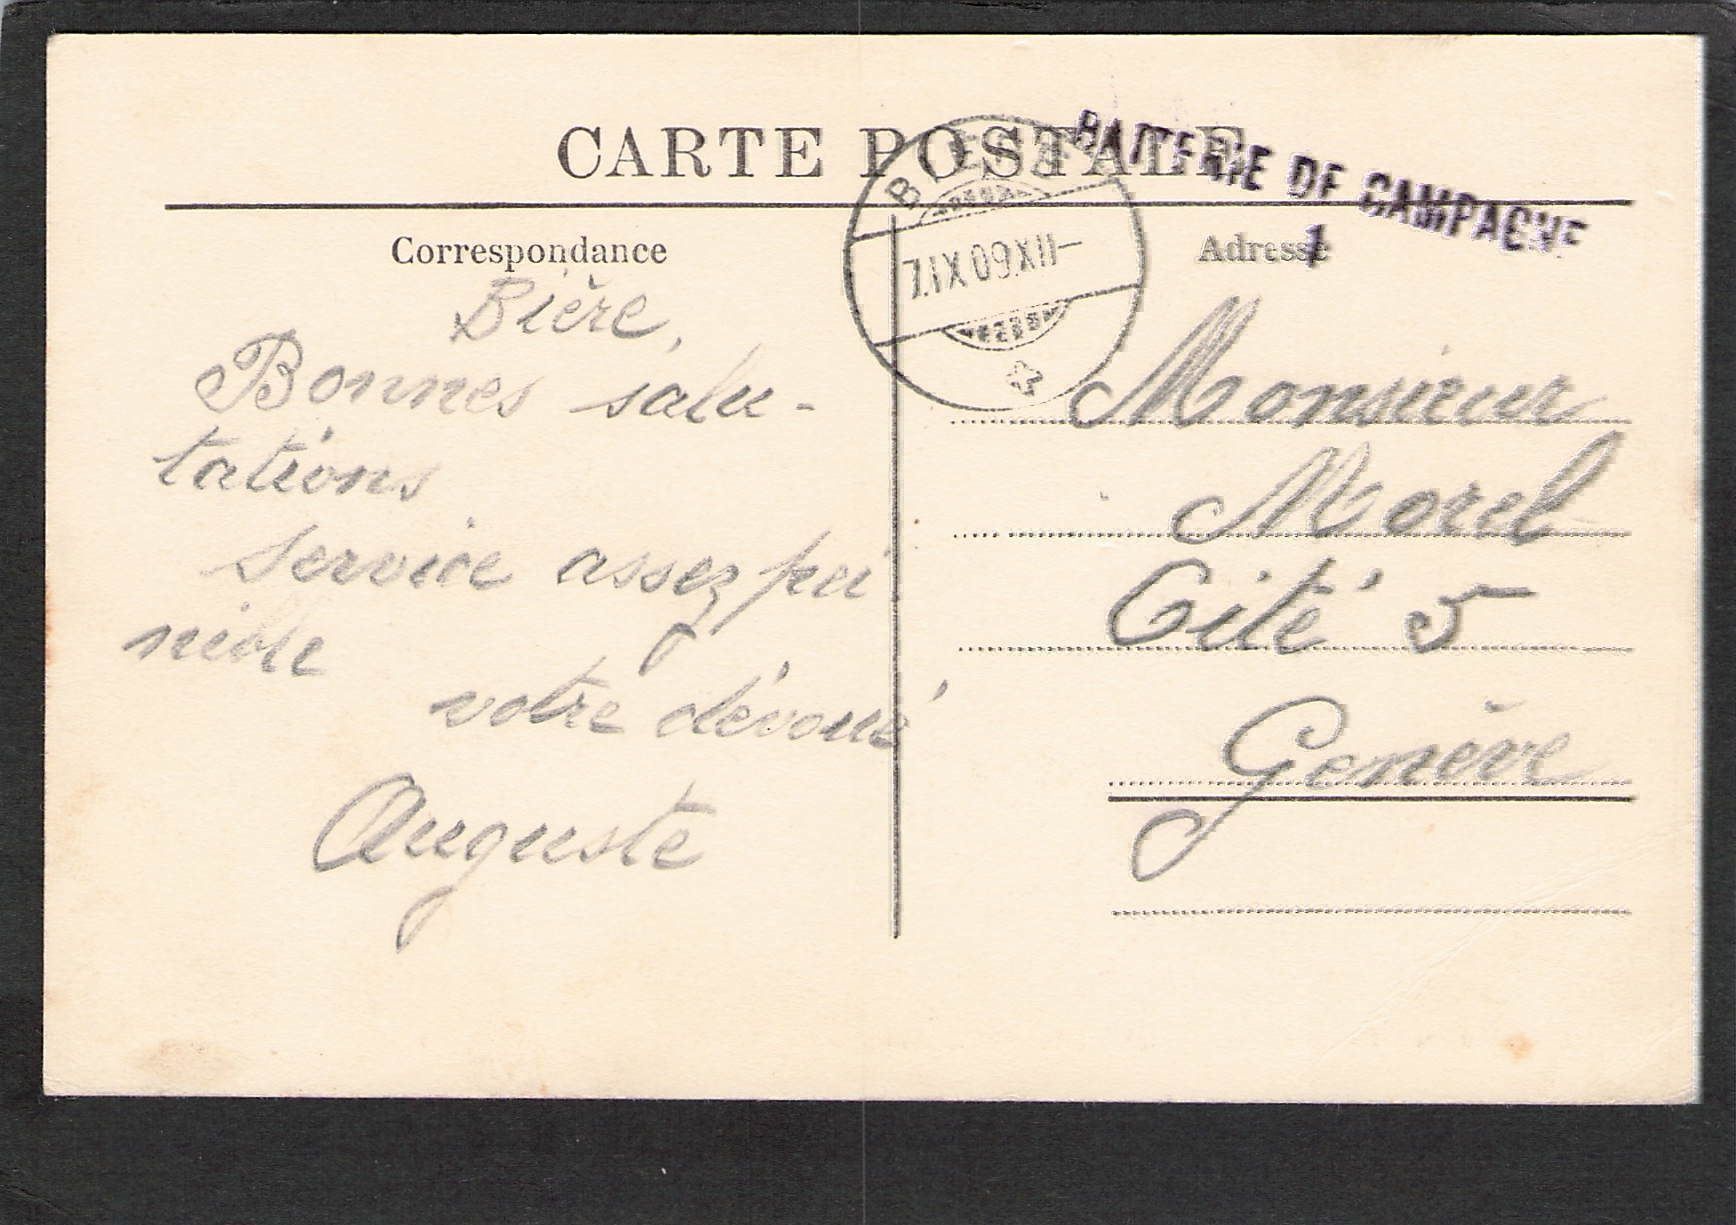 CARTE POSTALE
BATTERIE DE CAMPAGNE
1
BIÈRE
7.IX.09.XII-
Correspondance
Adresse
Bière,
Bonnes salu-
tations
Service assez pé
nible
votre dévoué
Auguste
Monsieur
Morel
Cité 5
Genève